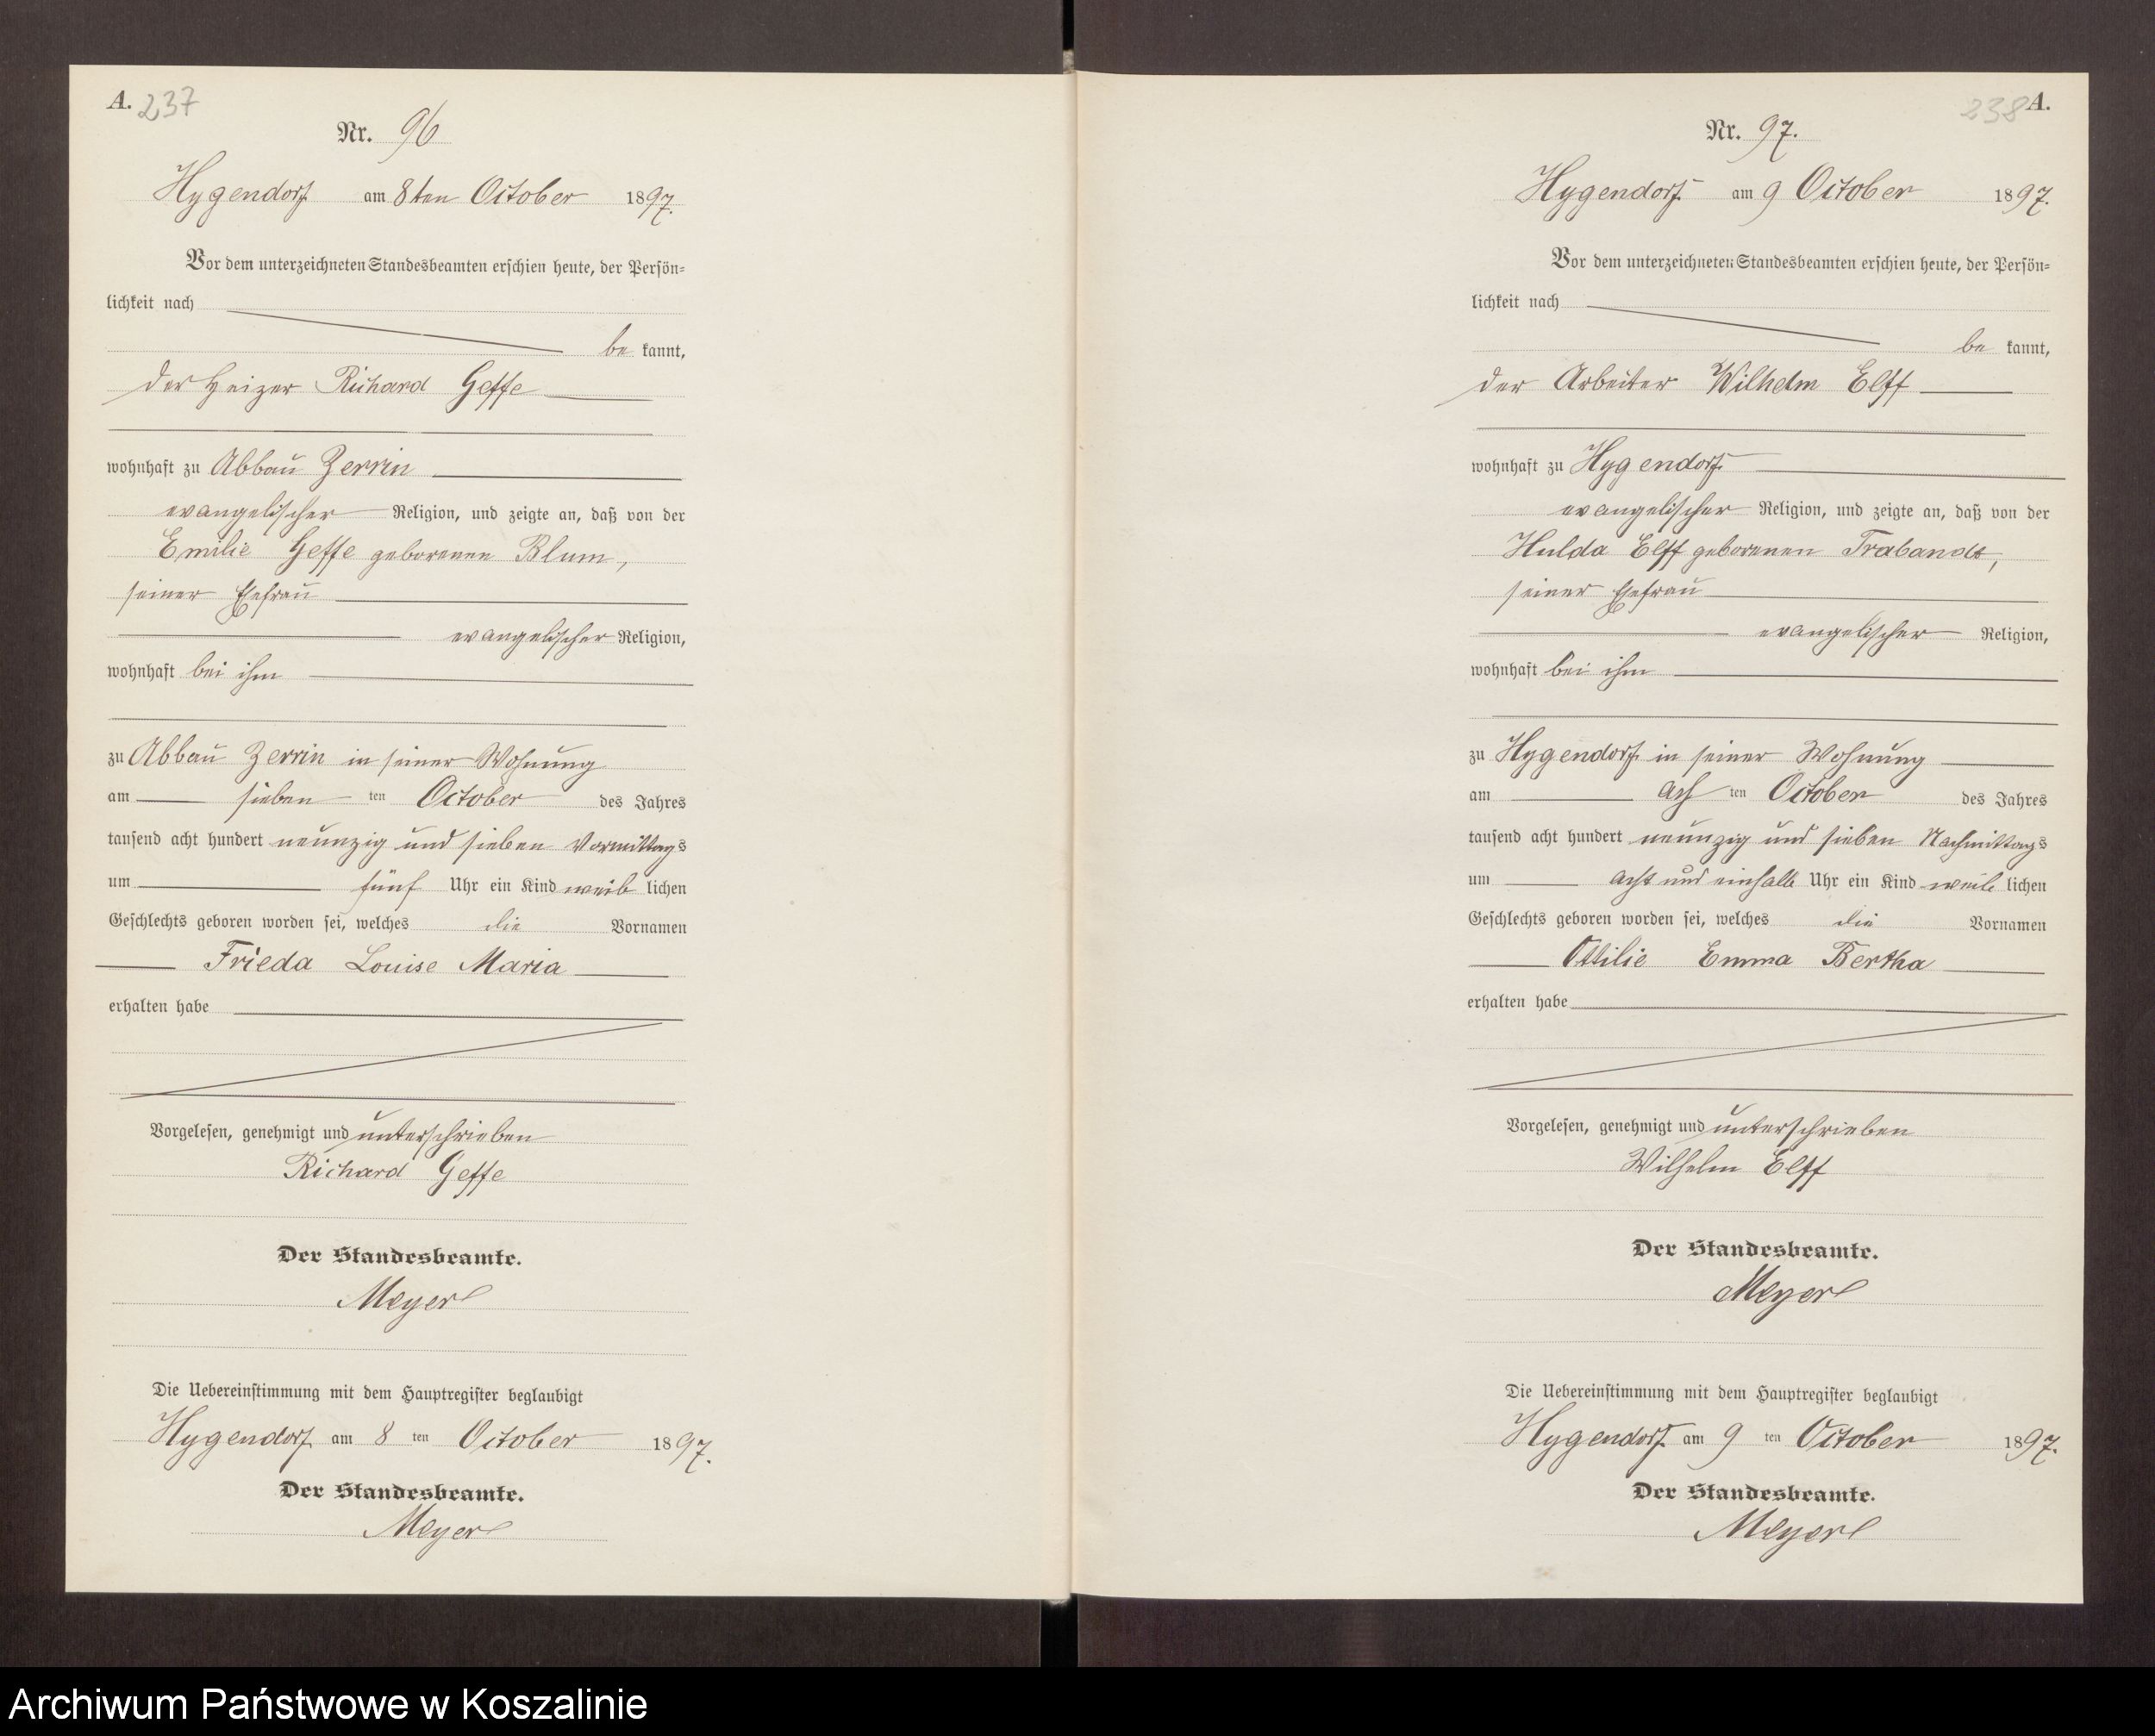 A. 237
Nr. 96
Hygendorf am 8ten October 1897.
Vor dem unterzeichneten Standesbeamten erschien heute, der Persön-
lichkeit nach
be kannt,
der Heizer Richard Geffe
wohnhaft zu Abbau Zerrin
evangelischer Religion, und zeigte an, daß von der
Emilie Geffe geborenen Blum,
seiner Ehefrau
evangelischer Religion,
wohnhaft bei ihm
zu Abbau Zerrin in seiner Wohnung
am sieben ten October des Jahres
tausend acht hundert neunzig und sieben Vormittags
um fünf Uhr ein Kind weib lichen
Geschlechts geboren worden sei, welches die Vornamen
Frieda Louise Maria
erhalten habe
Vorgelesen, genehmigt und unterschrieben
Richard Geffe
Der Standesbeamte.
Meyer
Die Uebereinstimmung mit dem Hauptregister beglaubigt
Hygendorf am 8 ten October 1897.
Der Standesbeamte.
Meyer
238 A.
Nr. 97.
Hygendorf am 9 October 1897.
Vor dem unterzeichneten Standesbeamten erschien heute, der Persön-
lichkeit nach
be kannt,
der Arbeiter Wilhelm Elff
wohnhaft zu Hygendorf
evangelischer Religion, und zeigte an, daß von der
Hulda Elff geborenen Trabandt,
seiner Ehefrau
evangelischer Religion,
wohnhaft bei ihm
zu Hygendorf in seiner Wohnung
am ach ten October des Jahres
tausend acht hundert neunzig und sieben Nachmittags
um acht und einhalb Uhr ein Kind weib lichen
Geschlechts geboren worden sei, welches die Vornamen
Ottilie Emma Bertha
erhalten habe
Vorgelesen, genehmigt und unterschrieben
Wilhelm Elff
Der Standesbeamte.
Meyer
Die Uebereinstimmung mit dem Hauptregister beglaubigt
Hygendorf am 9 ten October 1897.
Der Standesbeamte.
Meyer
Archiwum Państwowe w Koszalinie